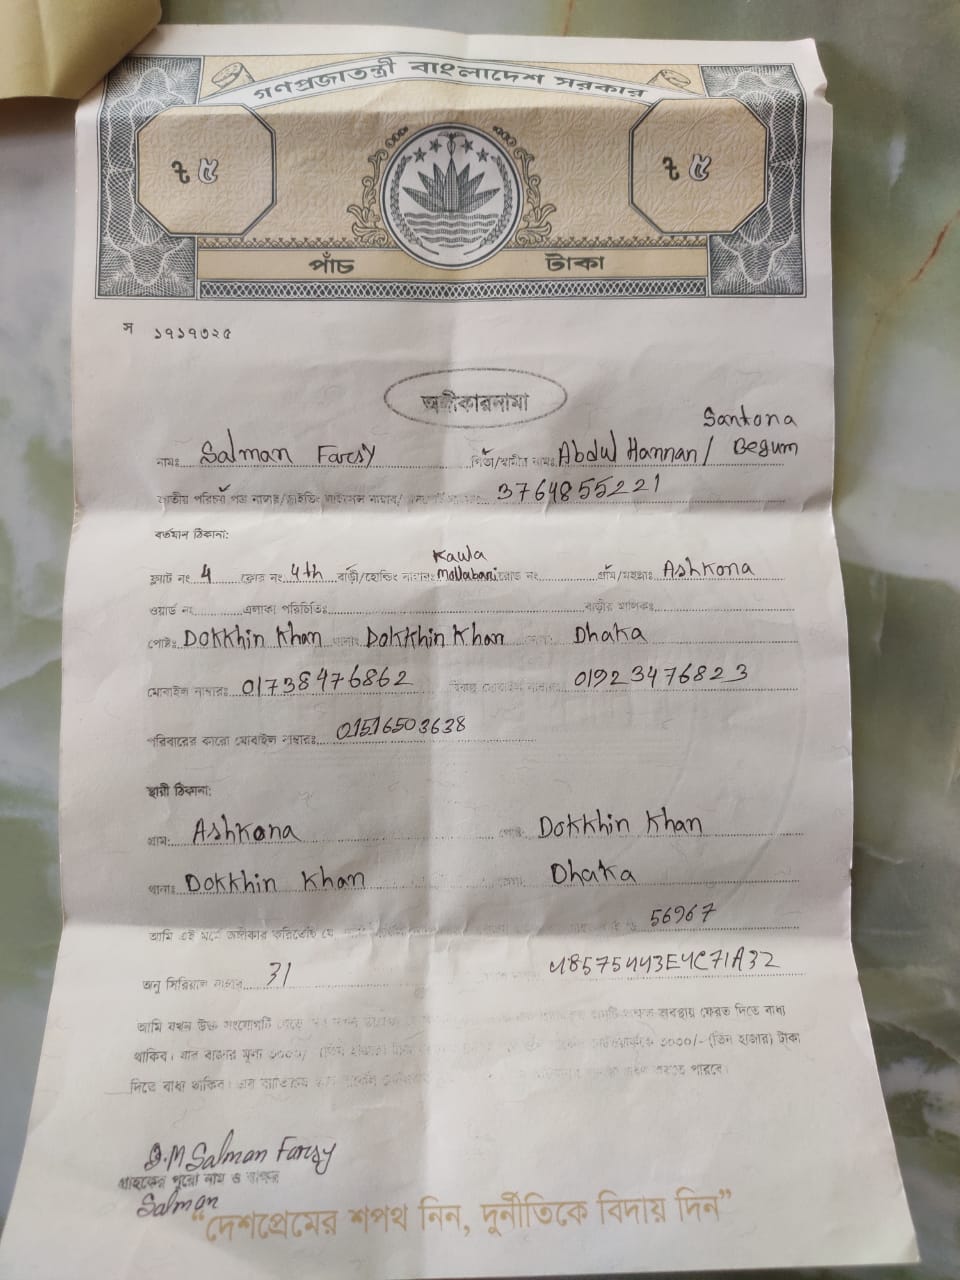 গণপ্রজাতন্ত্রী বাংলাদেশ সরকার
৳ ৫ ৳ ৫
পাঁচ টাকা
স ১৭১৭৩২৫
অঙ্গীকারনামা
Santona
নামঃ Salman Farsy পিতা/স্বামীর নামঃ Abdul Hannan/ Begum
জাতীয় পরিচয় পত্র নাম্বার/ড্রাইভিং লাইসেন্স নাম্বার/ 3764855221
বর্তমান ঠিকানা:
Kawla
ফ্লাট নং 4 ফ্লোর নং 4th বাড়ী/হোল্ডিং নাম্বারঃ Mollabari রোড নং গ্রাম/মহল্লাঃ Ashkona
ওয়ার্ড নং এলাকা পরিচিতিঃ বাড়ীর মালিকঃ
পোষ্টঃ Dokkhin Khan থানাঃ Dokkhin Khan Dhaka
মোবাইল নাম্বারঃ 01738476862 বিকল্প মোবাইল নাম্বারঃ 01923476823
পরিবারের কারো মোবাইল নাম্বারঃ 01516503638
স্থায়ী ঠিকানা:
গ্রাম: Ashkona পোষ্ট: Dokkhin Khan
থানাঃ Dokkhin Khan Dhaka
আমি এই মর্মে অঙ্গীকার করিতেছি যে 56967
অনু সিরিয়াল নাম্বার 31 48575443E4C71A32
আমি যখন উক্ত সংযোগটি অবস্থায় ফেরত দিতে বাধ্য
থাকিব। যার বাজার মূল্য ৩০০০/- (তিন হাজার) ৩০০০/- (তিন হাজার) টাকা
দিতে বাধ্য থাকিব। করতে পারবে।
S.M Salman Farsy
গ্রাহকের পুরো নাম ও স্বাক্ষর
Salman
“দেশপ্রেমের শপথ নিন, দুর্নীতিকে বিদায় দিন”